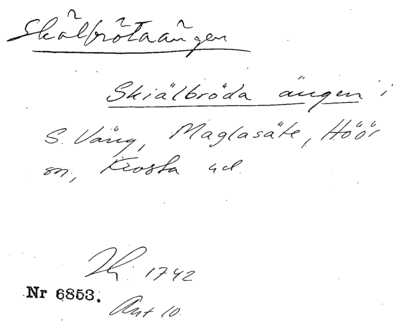 Skälbrötaängen
Skiälbröda ängen i
S. Väng, Maglasäte, Höör
sn, Frosta hd.
1742
Nr 6853.
Akt 10.